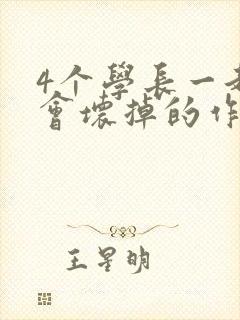 4个學長一
會壞掉的作
王星明